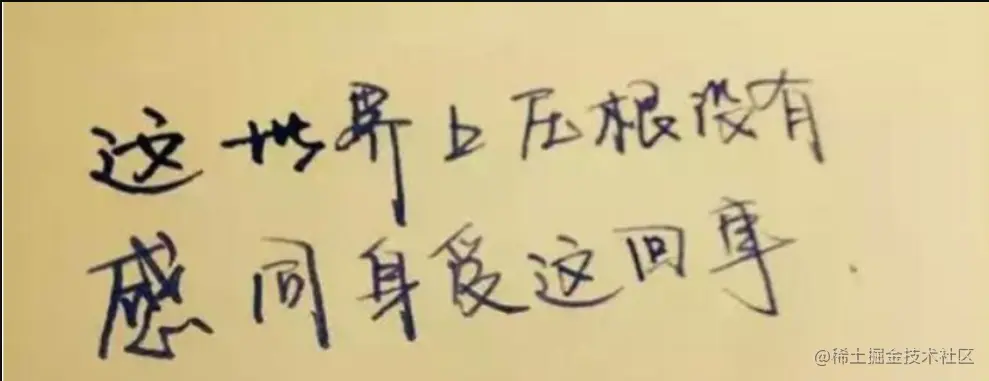 这世界上压根没有
感同身受这回事.
@稀土掘金技术社区